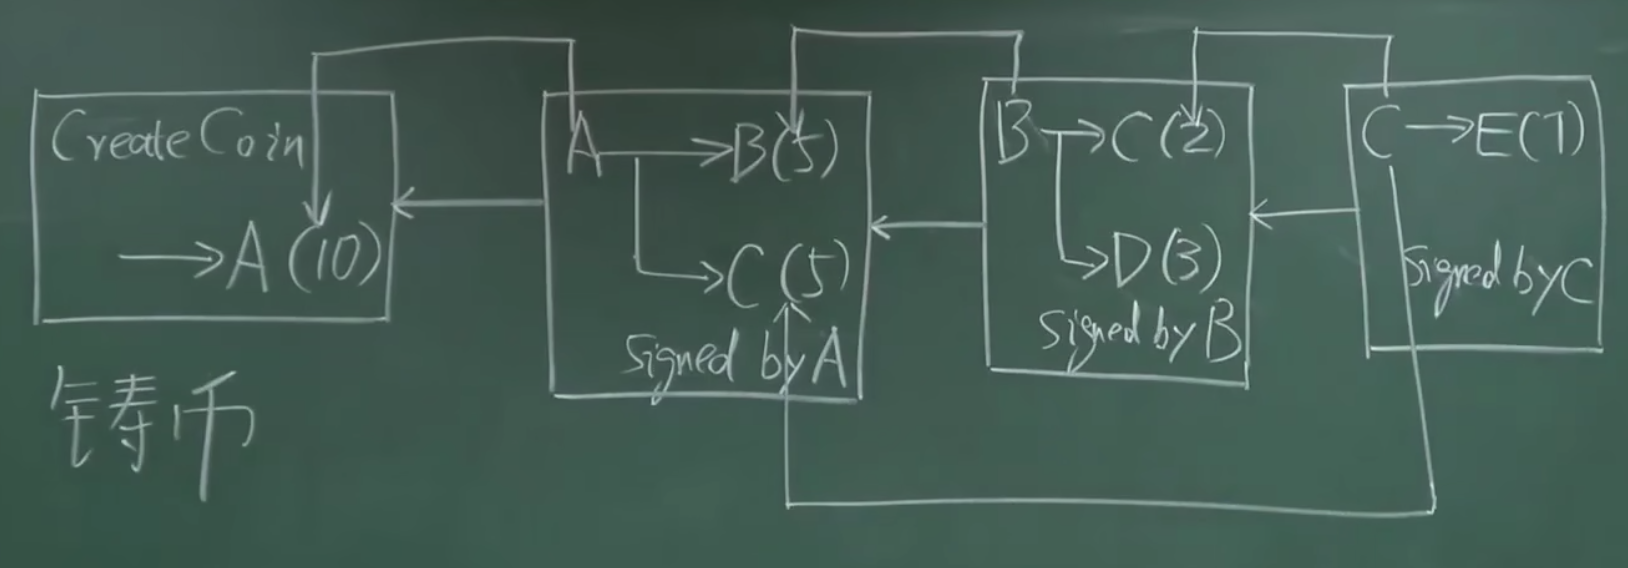 CreateCoin
→A(10)
A→B(5)
→C(5)
Signed by A
B→C(2)
→D(3)
Signed by B
C→E(7)
Signed by C
铸币